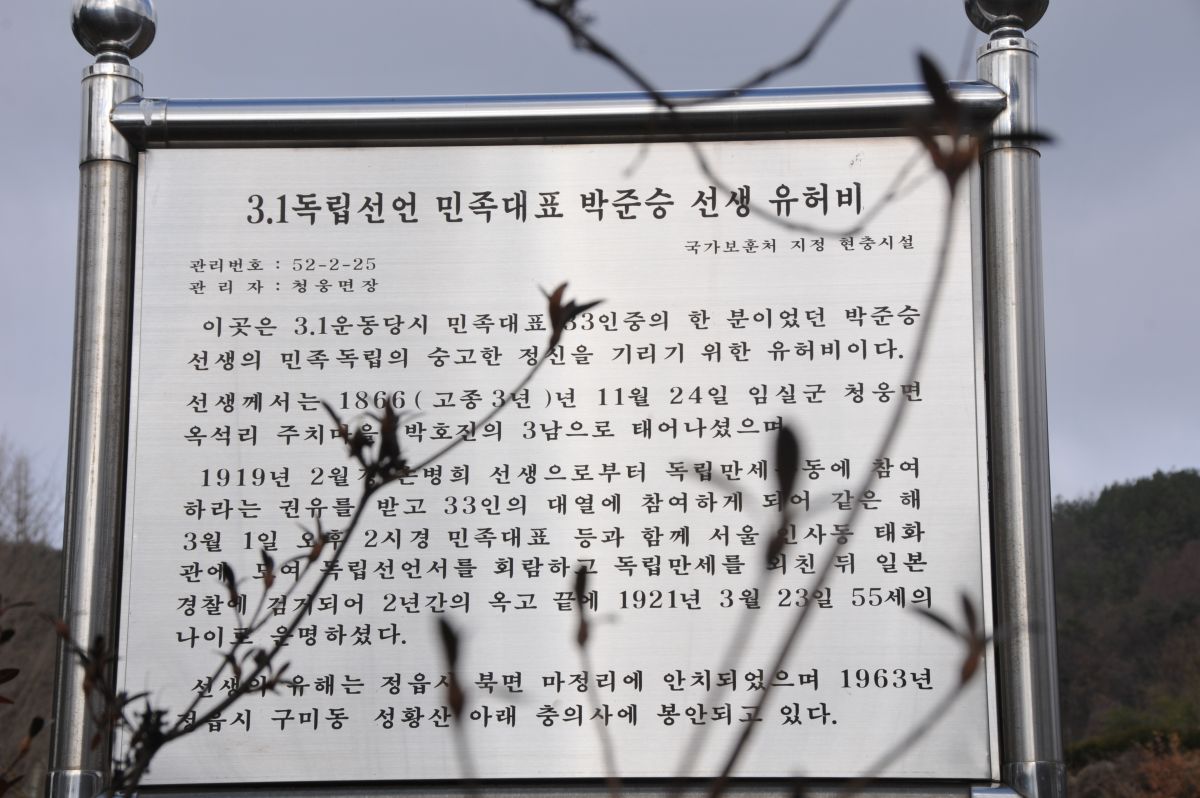 3.1독립선언 민족대표 박준승 선생 유허비
국가보훈처 지정 현충시설
관리번호 : 52-2-25
관 리 자 : 청웅면장
이곳은 3.1운동당시 민족대표 33인중의 한 분이었던 박준승
선생의 민족독립의 숭고한 정신을 기리기 위한 유허비이다.
선생께서는 1866(고종3년)년 11월 24일 임실군 청웅면
옥석리 주치마을 박호진의 3남으로 태어나셨으며
1919년 2월경 손병희 선생으로부터 독립만세운동에 참여
하라는 권유를 받고 33인의 대열에 참여하게 되어 같은 해
3월 1일 오후 2시경 민족대표 등과 함께 서울 인사동 태화
관에 모여 독립선언서를 회람하고 독립만세를 외친 뒤 일본
경찰에 검거되어 2년간의 옥고 끝에 1921년 3월 23일 55세의
나이로 운명하셨다.
선생의 유해는 정읍시 북면 마정리에 안치되었으며 1963년
정읍시 구미동 성황산 아래 충의사에 봉안되고 있다.